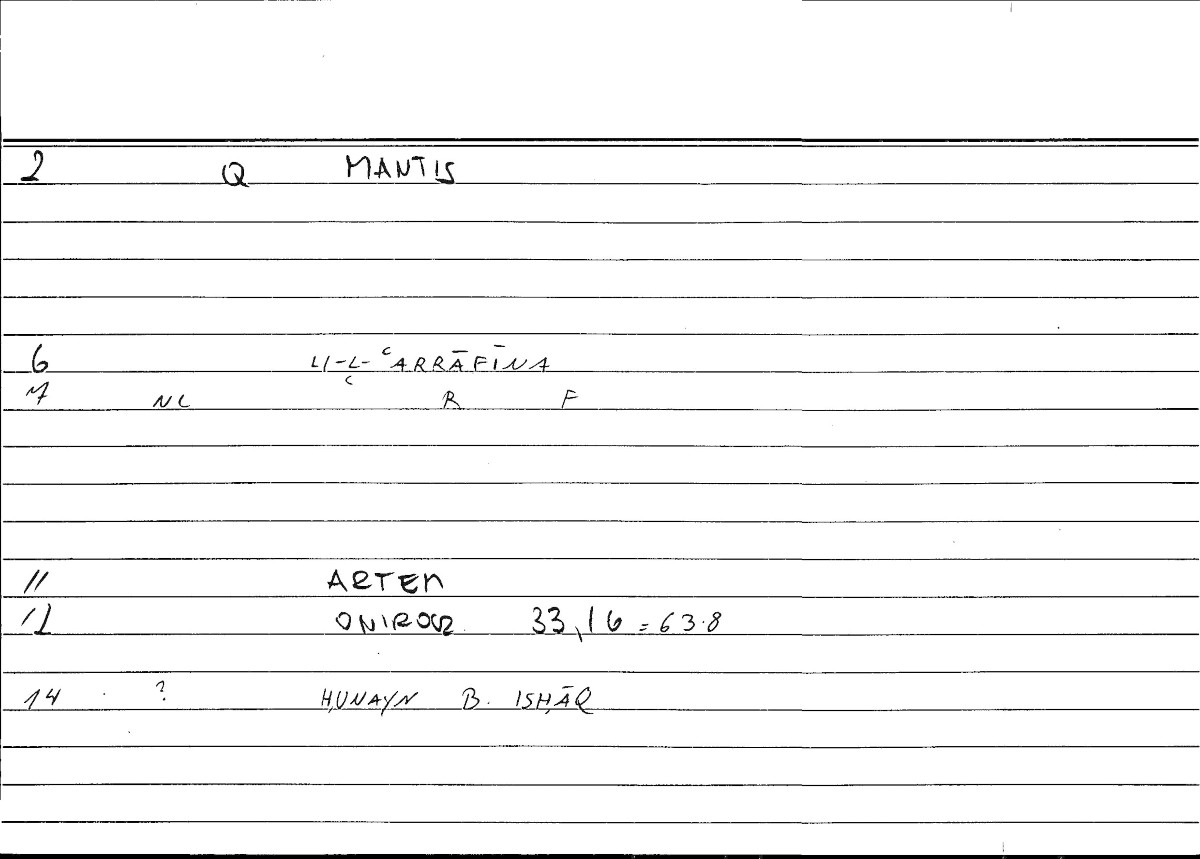 2 Q MANTIS
6 LI-L-ʿARRĀFĪNA
7 NC ʿ R F
11 ARTEM
12 ONIROCR. 33,16 = 63.8
14 ? ḤUNAYN B. ISḤĀQ